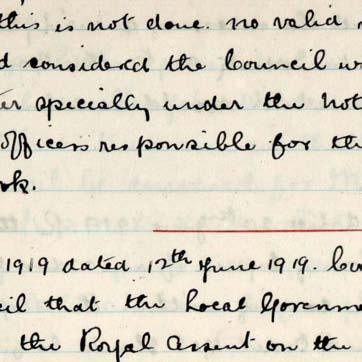 this is not done. no valid
d considered the Council w
er specially under the not
officers responsible for th
ok.
1919 dated 12th June 1919.
cil that the Local Governme
the Royal assent on the